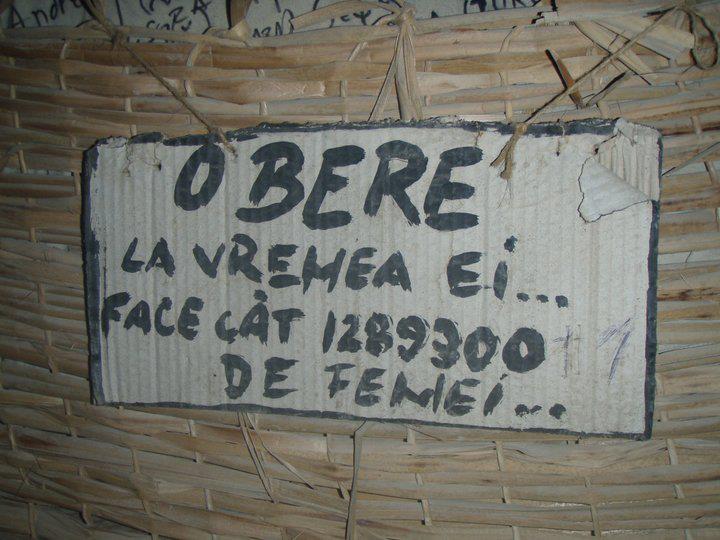 O BERE
LA VREMEA EI...
FACE CÂT 1289300
DE FEMEI...